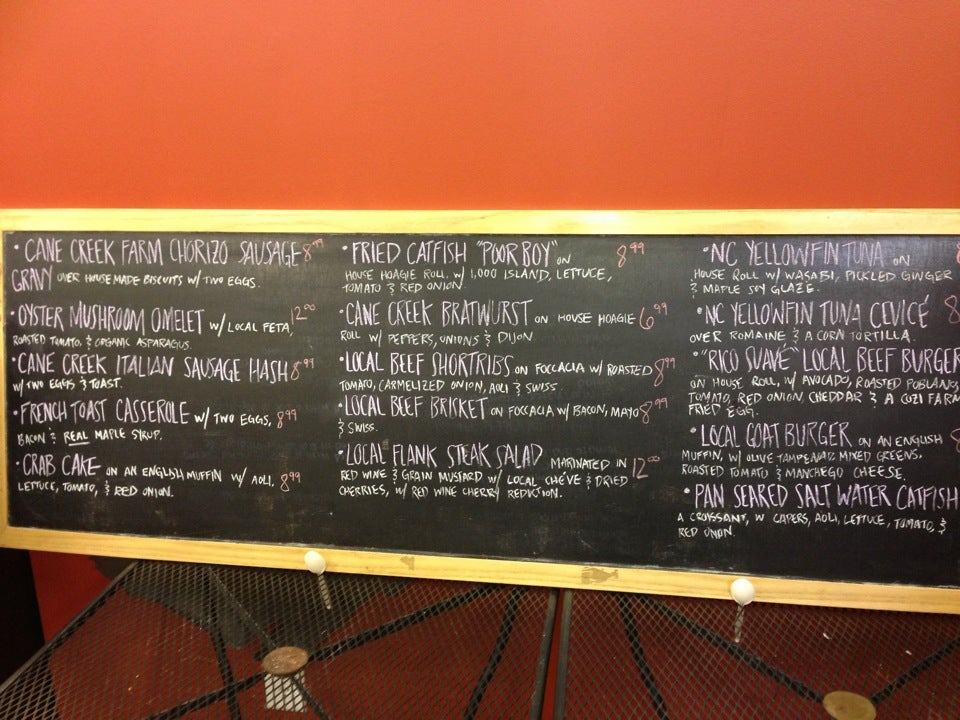 • CANE CREEK FARM CHORIZO SAUSAGE 8⁹⁹
GRAVY OVER HOUSE MADE BISCUITS W/ TWO EGGS.
• OYSTER MUSHROOM OMELET W/ LOCAL FETA, 12⁰⁰
ROASTED TOMATO, & ORGANIC ASPARAGUS.
• CANE CREEK ITALIAN SAUSAGE HASH 8⁹⁹
W/ TWO EGGS & TOAST.
• FRENCH TOAST CASSEROLE W/ TWO EGGS, 8⁹⁹
BACON & REAL MAPLE SYRUP.
• CRAB CAKE ON AN ENGLISH MUFFIN W/ AOLI, 8⁹⁹
LETTUCE, TOMATO, & RED ONION.
• FRIED CATFISH "POOR BOY" ON 8⁹⁹
HOUSE HOAGIE ROLL, W/ 1,000 ISLAND, LETTUCE,
TOMATO & RED ONION.
• CANE CREEK BRATWURST ON HOUSE HOAGIE 6⁹⁹
ROLL W/ PEPPERS, ONIONS & DIJON
• LOCAL BEEF SHORTRIBS ON FOCCACIA W/ ROASTED 8⁹⁹
TOMATO, CARMELIZED ONION, AOLI & SWISS.
• LOCAL BEEF BRISKET ON FOCCACIA W/ BACON, MAYO 8⁹⁹
& SWISS.
• LOCAL FLANK STEAK SALAD MARINATED IN 12⁰⁰
RED WINE & GRAIN MUSTARD W/ LOCAL CHEVE & DRIED
CHERRIES, W/ RED WINE CHERRY REDUCTION.
• NC YELLOWFIN TUNA ON
HOUSE ROLL W/ WASABI, PICKLED GINGER
& MAPLE SOY GLAZE.
• NC YELLOWFIN TUNA CEVICÉ 8
OVER ROMAINE & A CORN TORTILLA.
• "RICO SUAVÉ" LOCAL BEEF BURGER
ON HOUSE ROLL, W/ AVOCADO, ROASTED POBLANO,
TOMATO, RED ONION, CHEDDAR & A COZI FARM
FRIED EGG.
• LOCAL GOAT BURGER ON AN ENGLISH
MUFFIN, W/ OLIVE TAMPENADE, MIXED GREENS,
ROASTED TOMATO & MANCHEGO CHEESE.
• PAN SEARED SALT WATER CATFISH
A CROISSANT, W CAPERS, AOLI, LETTUCE, TOMATO, &
RED ONION.